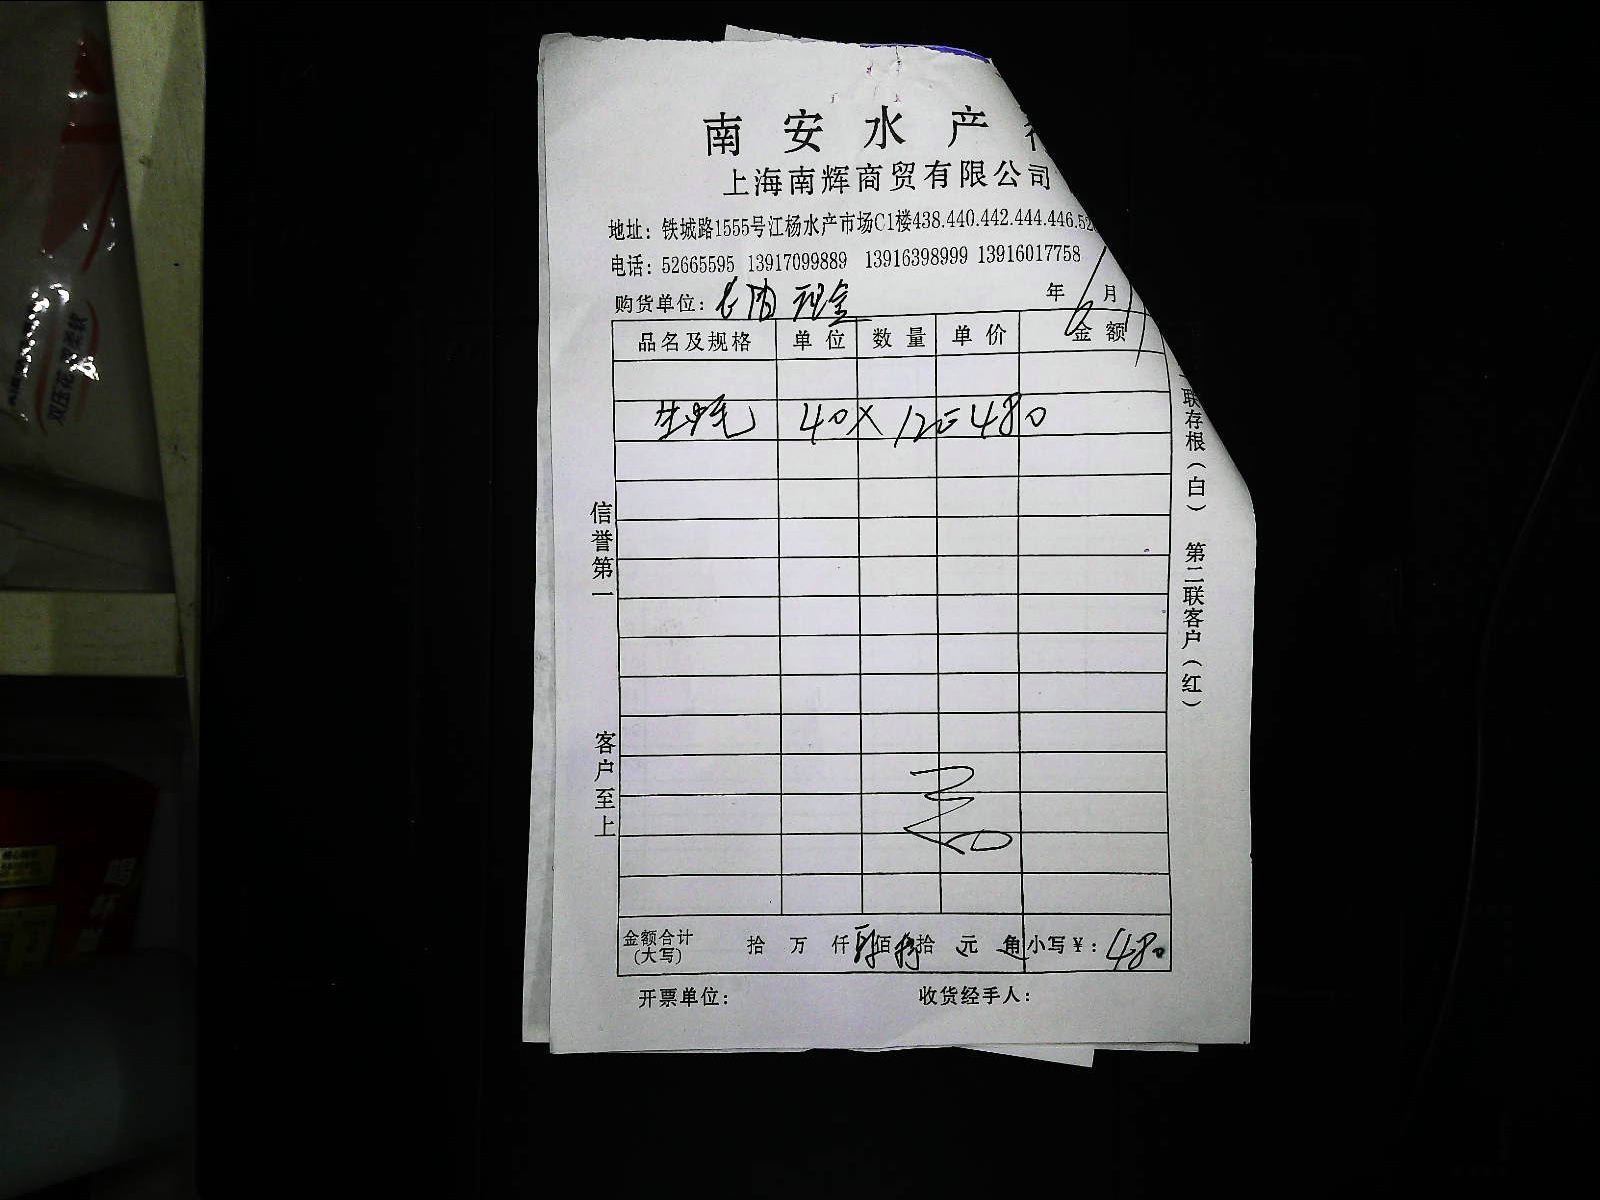 南安水产
上海南辉商贸有限公司
地址：铁城路1555号江杨水产市场C1楼438.440.442.444.446.52
电话：52665595 13917099889 13916398999 13916017758
购货单位： 现金 年 6 月
品名及规格 单位 数量 单价 金额
生蚝 40×12=480
信誉第一
客户至上
联存根（白） 第二联客户（红）
金额合计 拾 万 仟 肆佰 捌拾 元 角 小写￥：480
(大写)
开票单位： 收货经手人：
双压花 更柔软